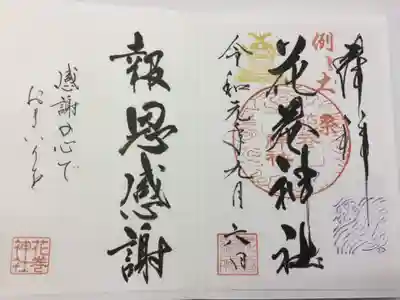 奉拝
例大祭
花巻神社
令和元年九月六日
報恩感謝
感謝の心で
おまいりを
花巻神社